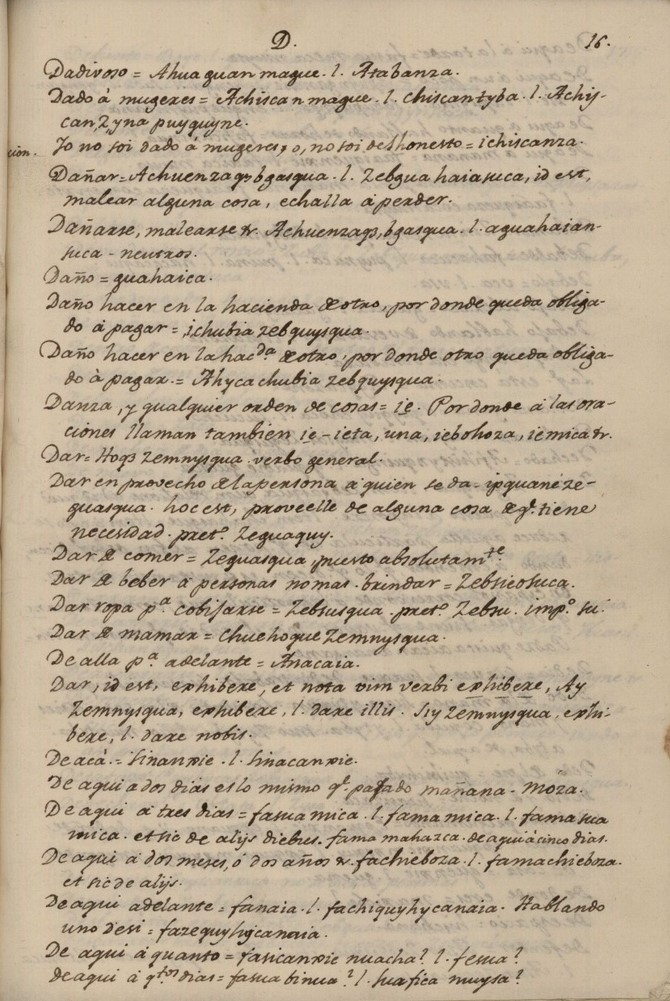 D. 16.
Dadivoso = Ahuaguan mague. l. Atabanza.
Dado á mugeres = Achiscan mague. l. chiscan tyba. l. Achis-
can, Z, yna puyquyne.
cion. Io no soi dado á mugeres, o, no soi deshonesto = ichiscanza.
Dañar = Achuenzaqɜ bgasqua. l. Zebgua haiasuca, id est,
malear alguna cosa, echalla á perder.
Dañarse, malearse &. Achuenzaqɜ, bgasqua. l. aguahaian-
suca - neutros.
Daño = guahaica.
Daño hacer en la hacienda de otro, por donde queda obliga-
do á pagar = ichubia zebquysqua.
Daño hacer en la hac.da de otro, por donde otro queda obliga-
do à pagar. = Ahyca chubia zebquysqua.
Danza, y qualquier orden de cosas = ie. Por donde á las ora-
ciones llaman tambien ie - ieta, una, iebohoza, iemica &.
Dar = Hoqɜ zemnysqua. verbo general.
Dar en provecho de la persona á quien se da - ipquané ze-
guasqua. hoc est, proveelle de alguna cosa de q.e tiene
necesidad. pret.o Zeguaquy.
Dar de comer = Zeguasqua, puesto absolutam.te
Dar de beber á personas nomas. brindar = Zebsiosuca.
Dar ropa p.a cobijarse = Zebsusqua. pret.o Zebsu. imp.o su.
Dar de mamar = chuehoque Zemnysqua.
De alla p.a adelante = Anacaia.
Dar, id est, exhibere, et nota vim verbi exhibere, Ay
Zemnysqua, exhibere, l. dare illis. Siy Zemnysqua, exhi-
bere, l. dare nobis.
De acá. = Sinanxie. l. Sinacanxie.
De aqui a dos dias es lo mismo q.e pasado mañana - Moza.
De aqui á tres dias = fasua mica. l. fama mica. l. fama sua
mica. et sic de alijs diebus. fama mahazca. de aqui á cinco dias.
De aqui á dos meses, ó dos años &. fachieboza. l. famachieboza.
et sic de alijs.
De aqui adelante = fanaia. l. fachiquyhycanaia. Hablando
uno de si = fazequyhycanaia.
De aqui á quanto = fasicanxie nuacha? l. fesua?
De aqui á q.tos dias = fasua binua? l. suafica nuysa?